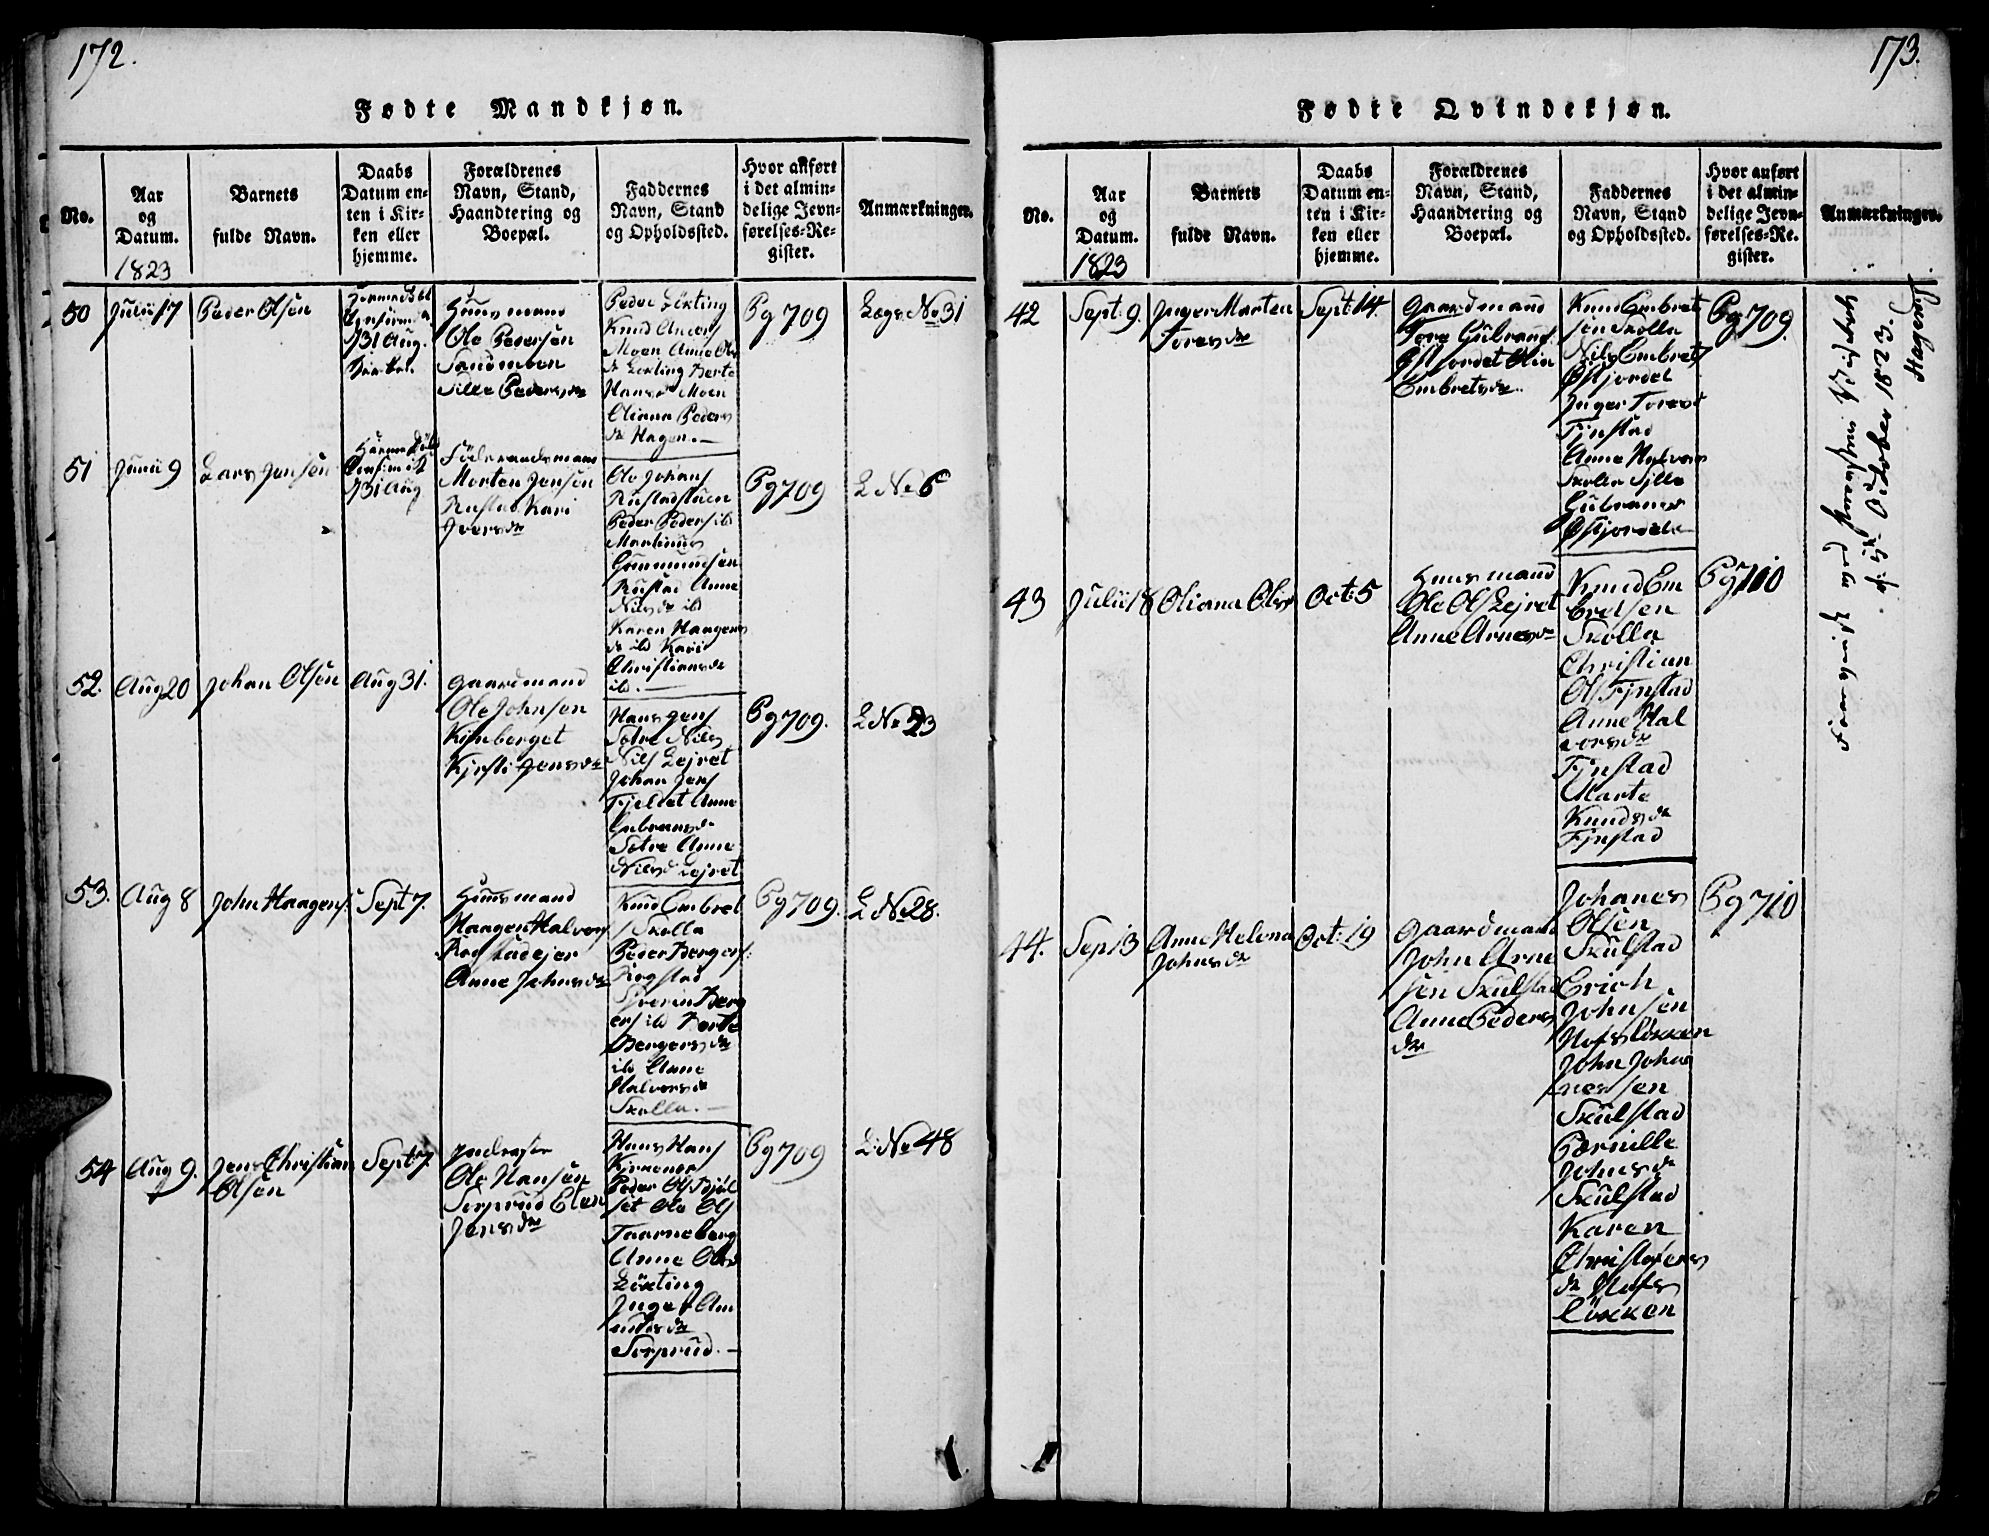 172.
Fødte Mandkjøn.
No.
Aar
og
Datum.
1823
Barnets
fulde Navn.
Daabs
Datum en-
ten i Kir-
ken eller
hjemme.
Forældrenes
Navn, Stand,
Haandtering og
Boepæl.
Faddernes
Navn, Stand
og Opholdssted.
Hvor anført
i det almin-
delige Jevn-
førelses-Re-
gister.
Anmærkninger.
50
Julii 17
Peder Olsen
31 Aug.
Huusmand
Ole Pedersen
Sandmoen
Sille Pedersdr
Peder Lexting
Knud Anders
Moen Anne Ols
dr Lexting Berte
Hansd Moen
Oliana Peders
dr Hagen.
Pg 709
Lægs No 31
51
Junii 9
Lars Jensen
31 Aug
Föderaadsmand
Morten Jensen
Rustad Kari
Iversdr
Ole Johans
Rustadstuen
Peder Peders ib
Martinus
Gummundsen
Rustad Anne
Nilsdr ib
Karen Haagens
dr ib Kari
Christiansdr
ib.
Pg 709
L No 6
52.
Aug 20
Johan Olsen
Aug 31.
Gaardmand
Ole Johnsen
Kimberget
Kjersti Jensdr
Hans Jens
Sætre Nils
Nils Lejret
Johan Jens
Fjeldet Anne
Gubransdr
Sætre Anne
Nilsd Lejret
Pg 709.
L No 23
53.
Aug 8
John Haagens
Sept 7.
Huusmand
Haagen Halvors
Rogstadejer
Anne Johnsdr
Knud Embret
s Skolla
Peder Bergers
Rogstad
Iverin Berg
ers ib Berte
Bergersdr
ib Anne
Halvorsdr
Skolla.
Pg 709.
L No 28.
54
Aug 9.
Jens Christian
Olsen
Sept 7
Inderste
Ole Hansen
Sorprud Elen
Jensdr
Hans Hans
Peder Ols Bjøl
set Ole Ols
Taarneberg
Anne Olsd
Löxting
Inger Am
undsdr
Sorprud.
Pg 709
L No 48
173.
Fødte Qvindekjøn.
No.
Aar
og
Datum.
1823
Barnets
fulde Navn.
Daabs
Datum en-
ten i Kir-
ken eller
hjemme.
Forældrenes
Navn, Stand,
Haandtering og
Boepæl.
Faddernes
Navn, Stand
og Opholdssted.
Hvor anført
i det almin-
delige Jevn-
førelses-Re-
gister.
Anmærkninger.
42
Sept. 9.
Inger Marten
Toresdr
Sept 14.
Gaardmand
Tore Gubrands
Østjordet Olia
Embretsdr
Knud Embret
sen Skolla
Nils Embrets
Østjordet
Inger Toresd
Fjnstad
Anne Halvors
Skolla Sille
Gubransd
Østjordet
Pg 709.
43
Julii 18
Oliana Olsd
Oct: 5
Huusmand
Ole Ols Lejret
Anne Arnesdr
Knud Em
bretsen
Skolla
Christian
Ols Fjnstad
Anne Hal
vorsdr
Fjnstad
Marte
Knudsdr
Fjnstad
Pg 710
44.
Sep 13
Anne Helena
Johnsdr
Oct: 19
Gaardmand
John Arne
sen Skulstad
Anne Peders
dr
Johanes
Olsen
Skulstad
Erich
Johnsen
Hofsløkken
John Joha
nessen
Skulstad
Pernille
Johnsdr
Skulstad
Karen
Christofers
dr Hofs
löxken
Pg 710
October 1823.